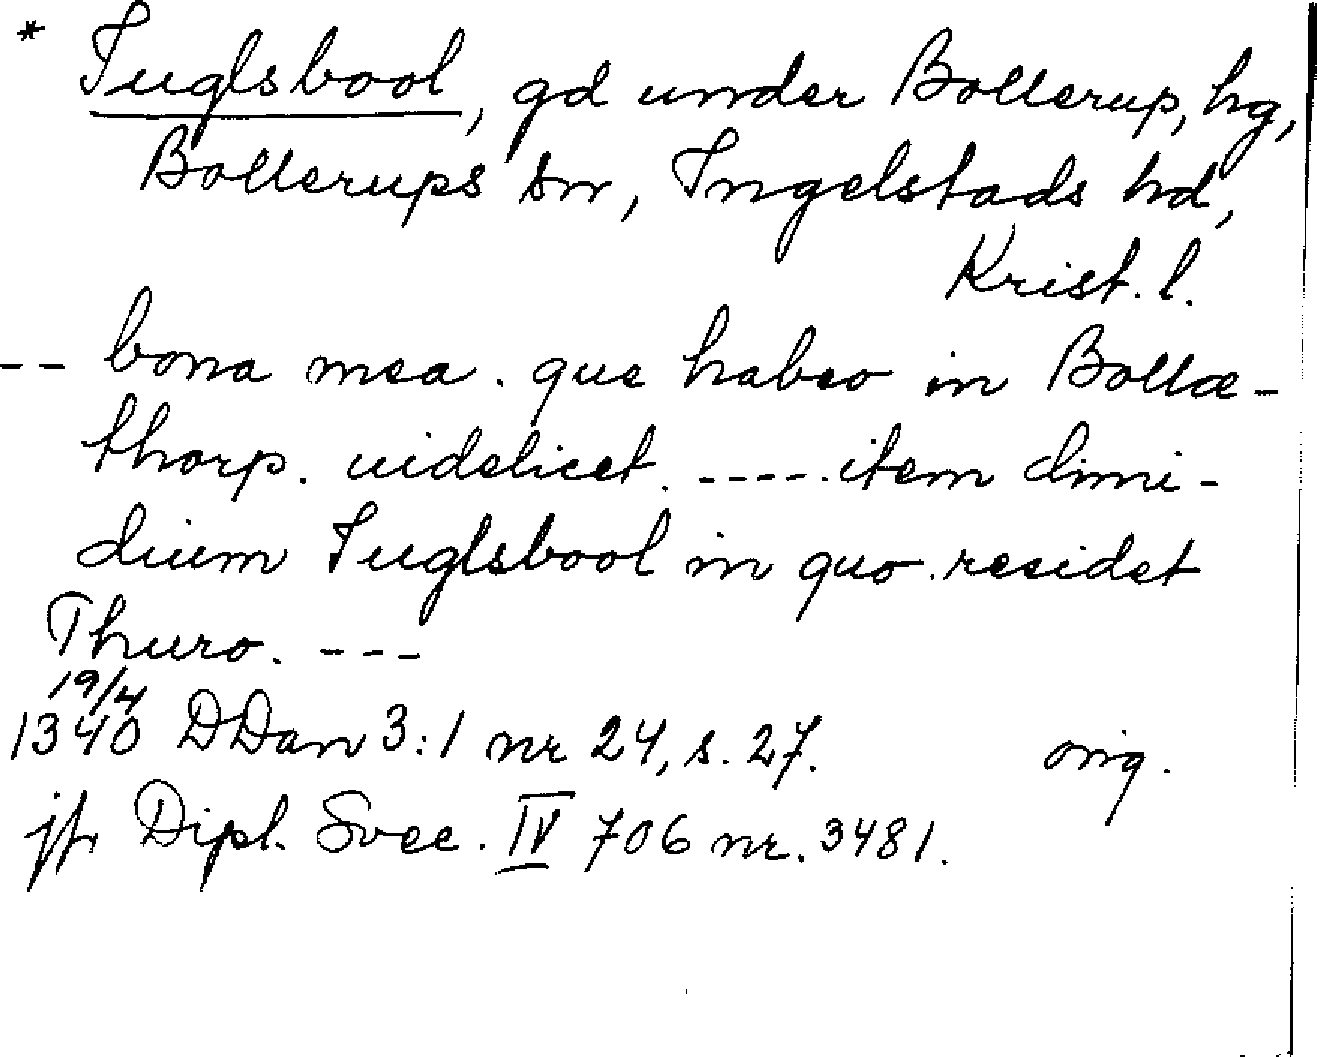 * Iuglsbool, gd under Bollerup, hg,
Bollerups sn, Ingelstads hd,
Krist. l.
-- bona mea. que habeo in Bollæ-
thorp. uidelicet. ----. item dimi-
dium Iuglsbool in quo. residet
Thuro. ---
19/4
1340 DDan 3:1 nr 24, s. 27. orig.
jfr Dipl. Svec. IV 706 nr. 3481.